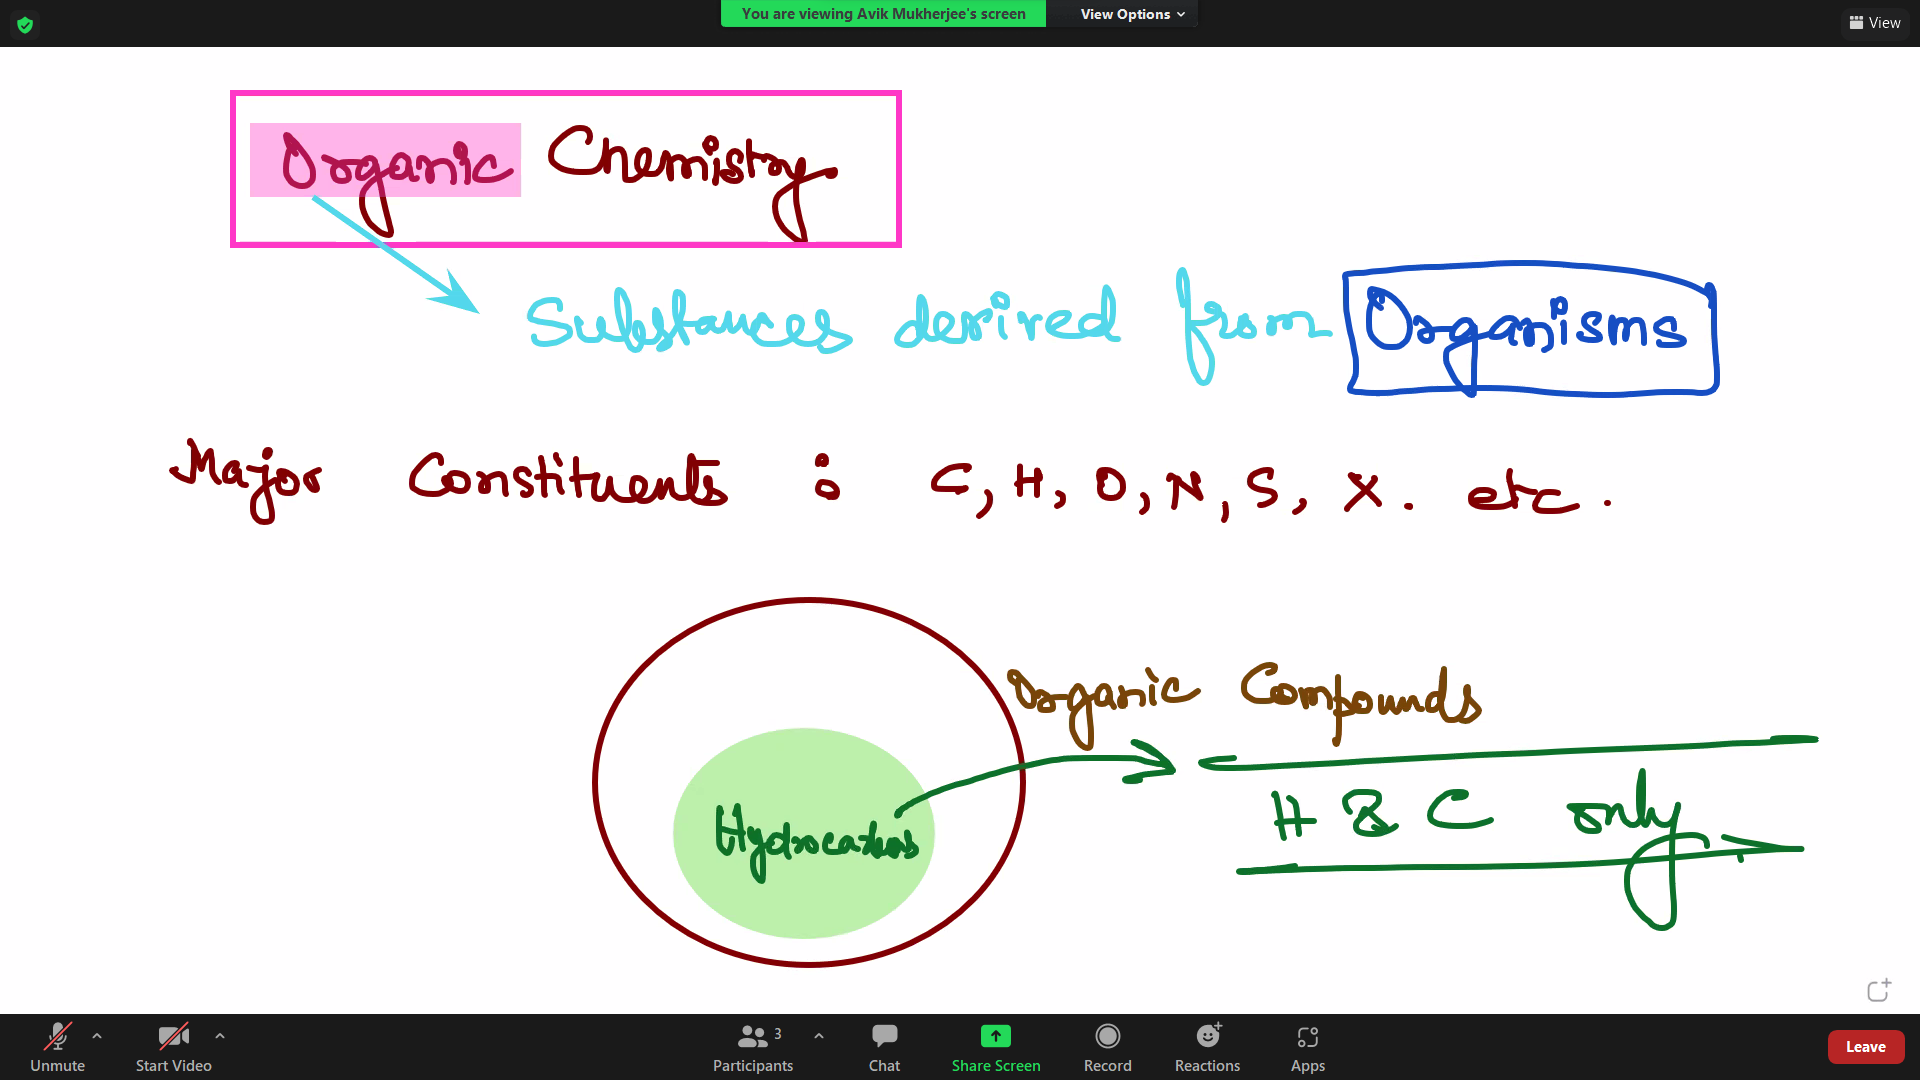 You are viewing Avik Mukherjee's screen View Options
View
Organic Chemistry
Substances derived from Organisms
Major Constituents : C, H, O, N, S, X. etc.
Organic Compounds
Hydrocarbons
H & C only
Unmute Start Video Participants 3 Chat Share Screen Record Reactions Apps Leave